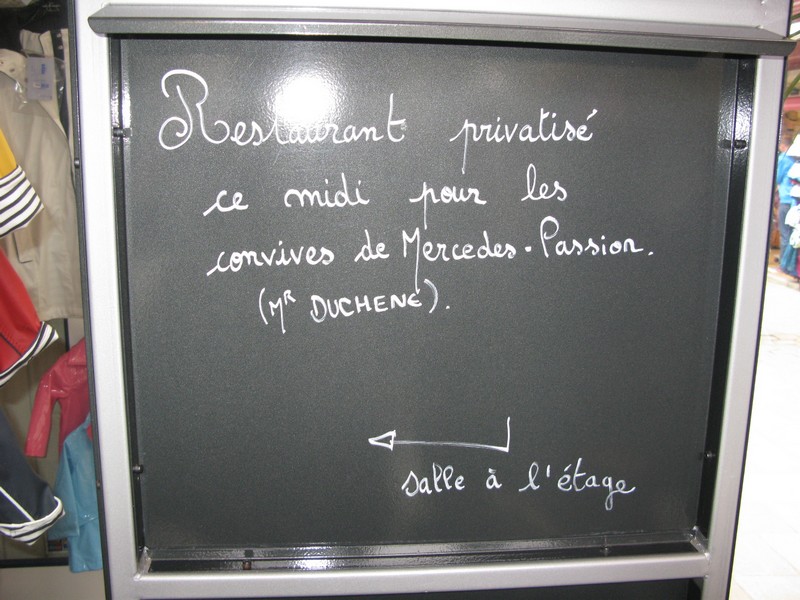 Restaurant privatisé
ce midi pour les
convives de Mercedes-Passion.
(MR DUCHENE).
salle à l'étage